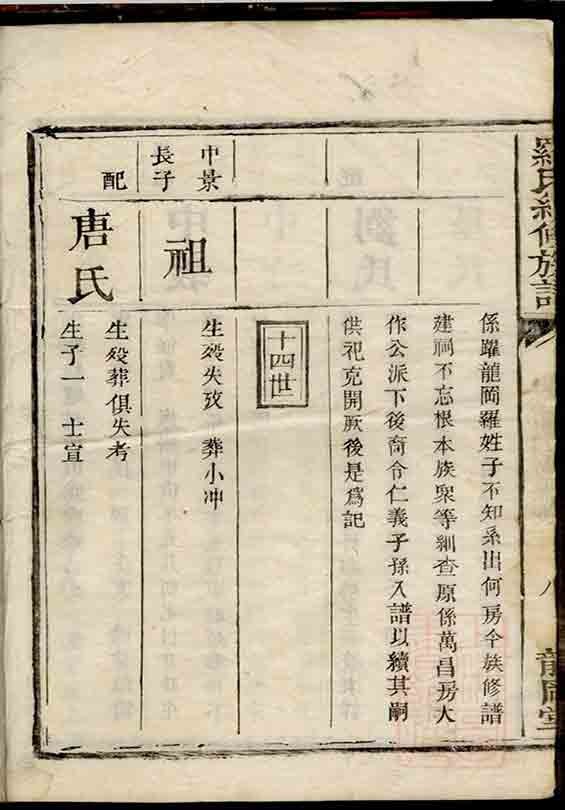 羅氏續修族譜
龍岡堂
係躍龍岡羅姓子不知系出何房今族修譜
建祠不忘根本族眾等細查原係萬昌房大
作公派下後裔令仁義子孫入譜以續其嗣
供祀克開厥後是為記
十四世
中景
長子
祖
生歿失攷 葬小冲
配
唐氏
生歿葬俱失考
生子一 士宣